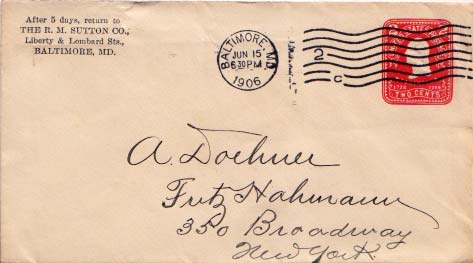 After 5 days, return to
THE R. M. SUTTON CO.,
Liberty & Lombard Sts.,
BALTIMORE, MD.
BALTIMORE, MD.
JUN 15
630 PM
1906
2
C
STATES
TWO CENTS
A. Doehner
Fritz Hahmann
350 Broadway
New York.